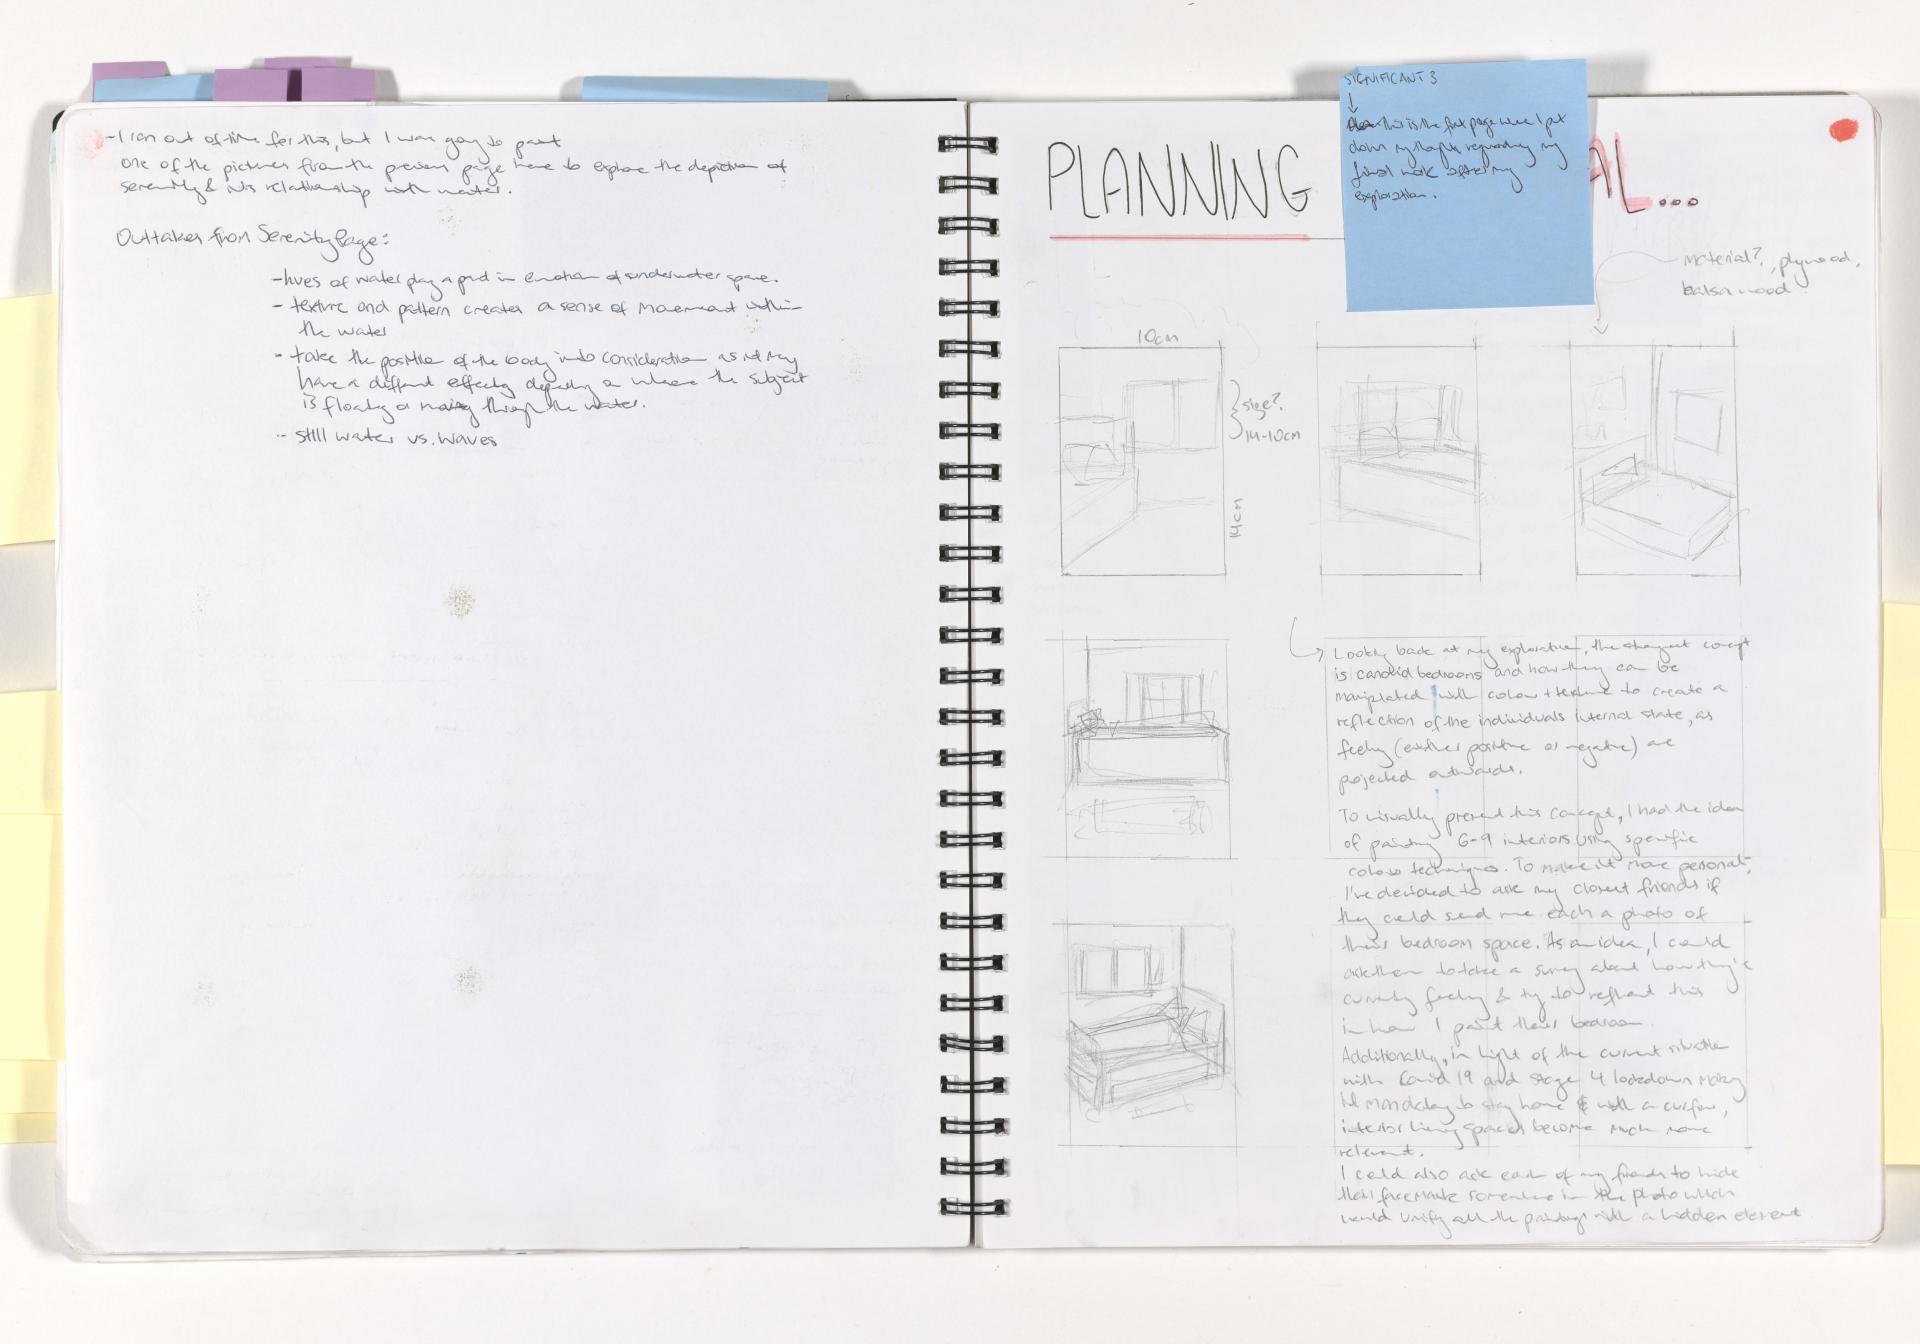 - I ran out of time for this, but I was going to paint
one of the pictures from the previous page here to explore the depiction of
serenity & its relationship with water.
Outtakes from Serenity Page:
- hues of water play a part in emotion of underwater space.
- texture and pattern creates a sense of movement within
the water
- take the position of the body into consideration as it may
have a different effect depending on where the subject
is floating or moving through the water.
- still water vs. waves
SIGNIFICANT 3
This is the first page where I put
down my thoughts regarding my
final work after my
exploration.
PLANNING AL...
Material? , plywood,
balsa wood?
10cm
size?
14-10cm
14cm
Looking back at my exploration, the strongest concept
is candid bedrooms and how they can be
manipulated with colour + texture to create a
reflection of the individuals internal state, as
feeling (either positive or negative) are
projected outwards.
To visually present this concept, I had the idea
of painting 6-9 interiors using specific
colour techniques. To make it more personal,
I've decided to ask my closest friends if
they could send me each a photo of
their bedroom space. As an idea, I could
ask them to take a survey about how they're
currently feeling & try to reflect this
in how I paint their bedroom.
Additionally, in light of the current situation
with Covid 19 and stage 4 lockdown making
it mandatory to stay home & with a curfew,
interior living spaces become much more
relevant.
I could also ask each of my friends to hide
their facemask somewhere in the photo which
would unify all the paintings with a hidden element